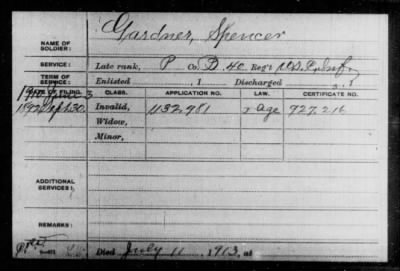 Gardner, Spencer
NAME OF SOLDIER:
SERVICE: Late rank, P Co. B 40 Reg't U.S.
TERM OF SERVICE: Enlisted , 1 Discharged
DATE OF FILING. CLASS. APPLICATION NO. LAW. CERTIFICATE NO.
1892 Sept. 30. Invalid, 1132,981 Age 927,216
Widow,
Minor,
ADDITIONAL SERVICES:
REMARKS:
Died July 11 1913, at